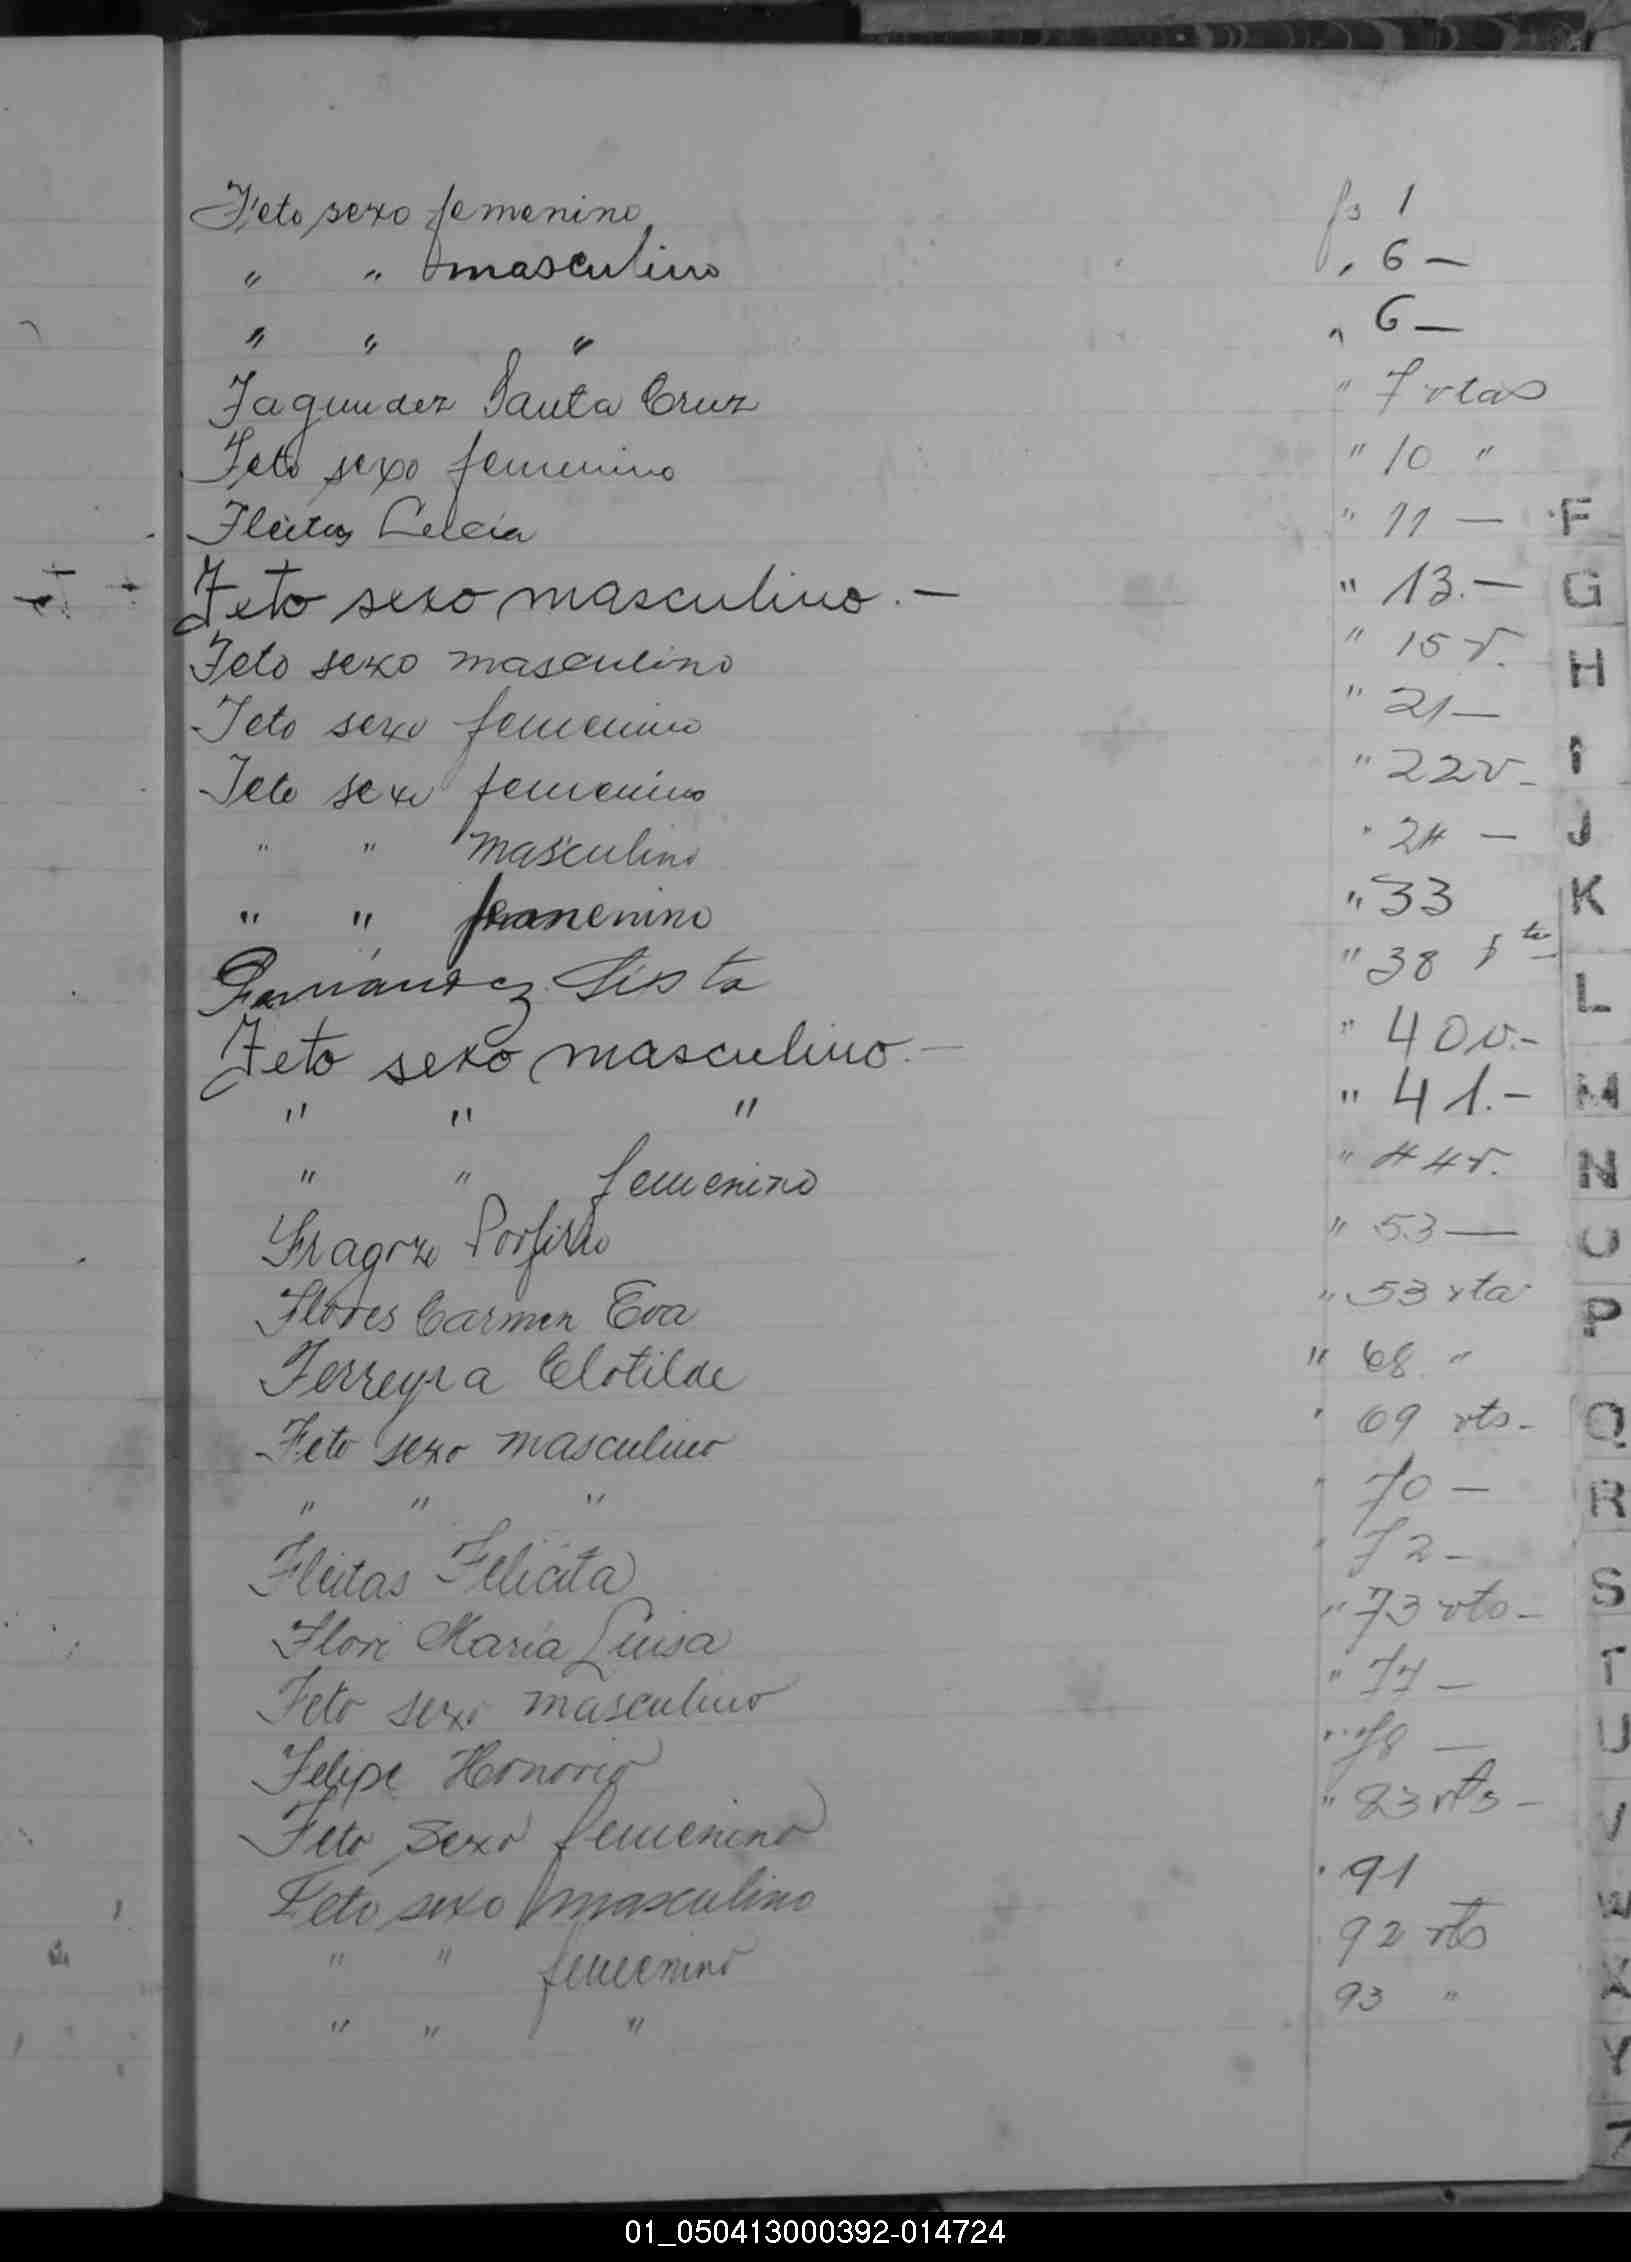 Feto sexo femenino fs 1
" " masculino " 6 —
" " " " 6 —
Fagundez Santa Cruz " 7 vtas
Feto sexo femenino " 10 "
Fleitas " 11 —
Feto sexo masculino. — " 13. —
Feto sexo masculino " 15 v.
Feto sexo femenino " 21 —
Feto sexo femenino " 22 v -
" " masculino " 24 —
" " femenino " 33
Fernandez Sista " 38
Feto sexo masculino. — " 40 v. -
" " " " 41. -
" " femenino " 44 v.
Fragozo Porfirio " 53 —
Flores Carmen Eva " 53 vta
Ferreyra Clotilde " 68 "
Feto sexo masculino " 69 vts -
" " " " 70 —
Fleitas Felicita " 72 -
Flori Maria Luisa " 73 vto -
Feto sexo masculino " 77 —
Felipe Honorio " 78 —
Feto sexo femenino " 83 vts -
Feto sexo masculino " 91
" " femenino 92 vts
" " " 93 "
F
G
H
I
J
K
L
M
N
O
P
Q
R
S
T
U
V
W
X
Y
Z
01_050413000392-014724